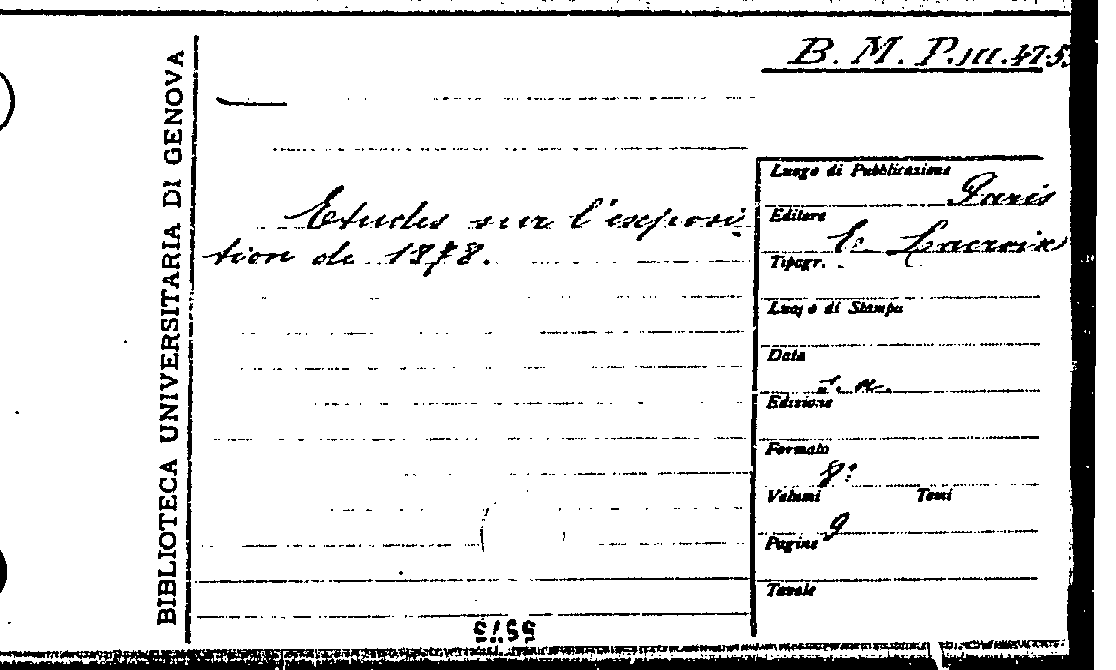 BIBLIOTECA UNIVERSITARIA DI GENOVA
B. M. P.III.47.5
Etudes sur l'exposi
tion de 1878.
Luogo di Pubblicazione
Paris
Editore
E. Lacroix
Tipogr.
Luogo di Stampa
Data
s. a.
Edizione
Formato
8:
Volumi Tomi
9
Pagine
Tavole